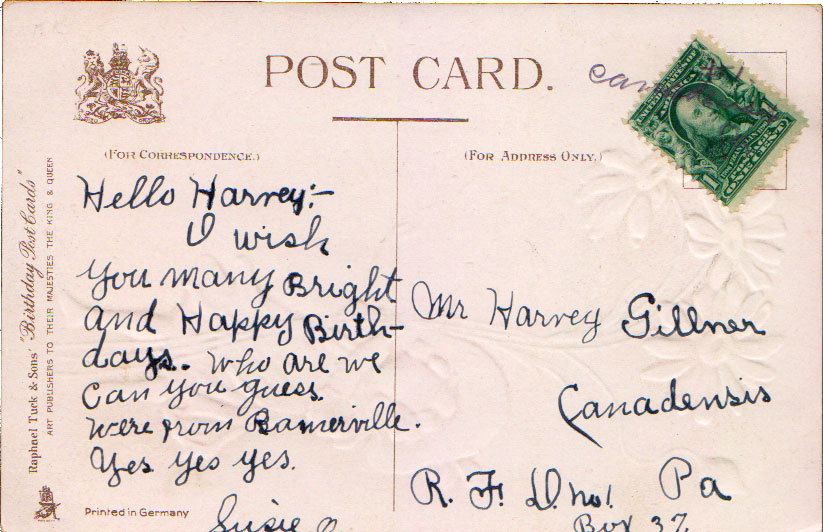 POST CARD.
Can
UNITED STATES OF AMERICA
1 ONE CENT 1
(FOR CORRESPONDENCE.)
(FOR ADDRESS ONLY.)
Raphael Tuck & Sons' "Birthday Post Cards"
ART PUBLISHERS TO THEIR MAJESTIES THE KING & QUEEN
Hello Harvey:-
I wish
you many Bright
and Happy Birth-
days.. who are we
Can you guess.
Were from Bamerville.
Yes yes yes.
Susie
Mr Harvey Gillner
Canadensis
R. F. D. no 1. Pa
Box 37
Printed in Germany